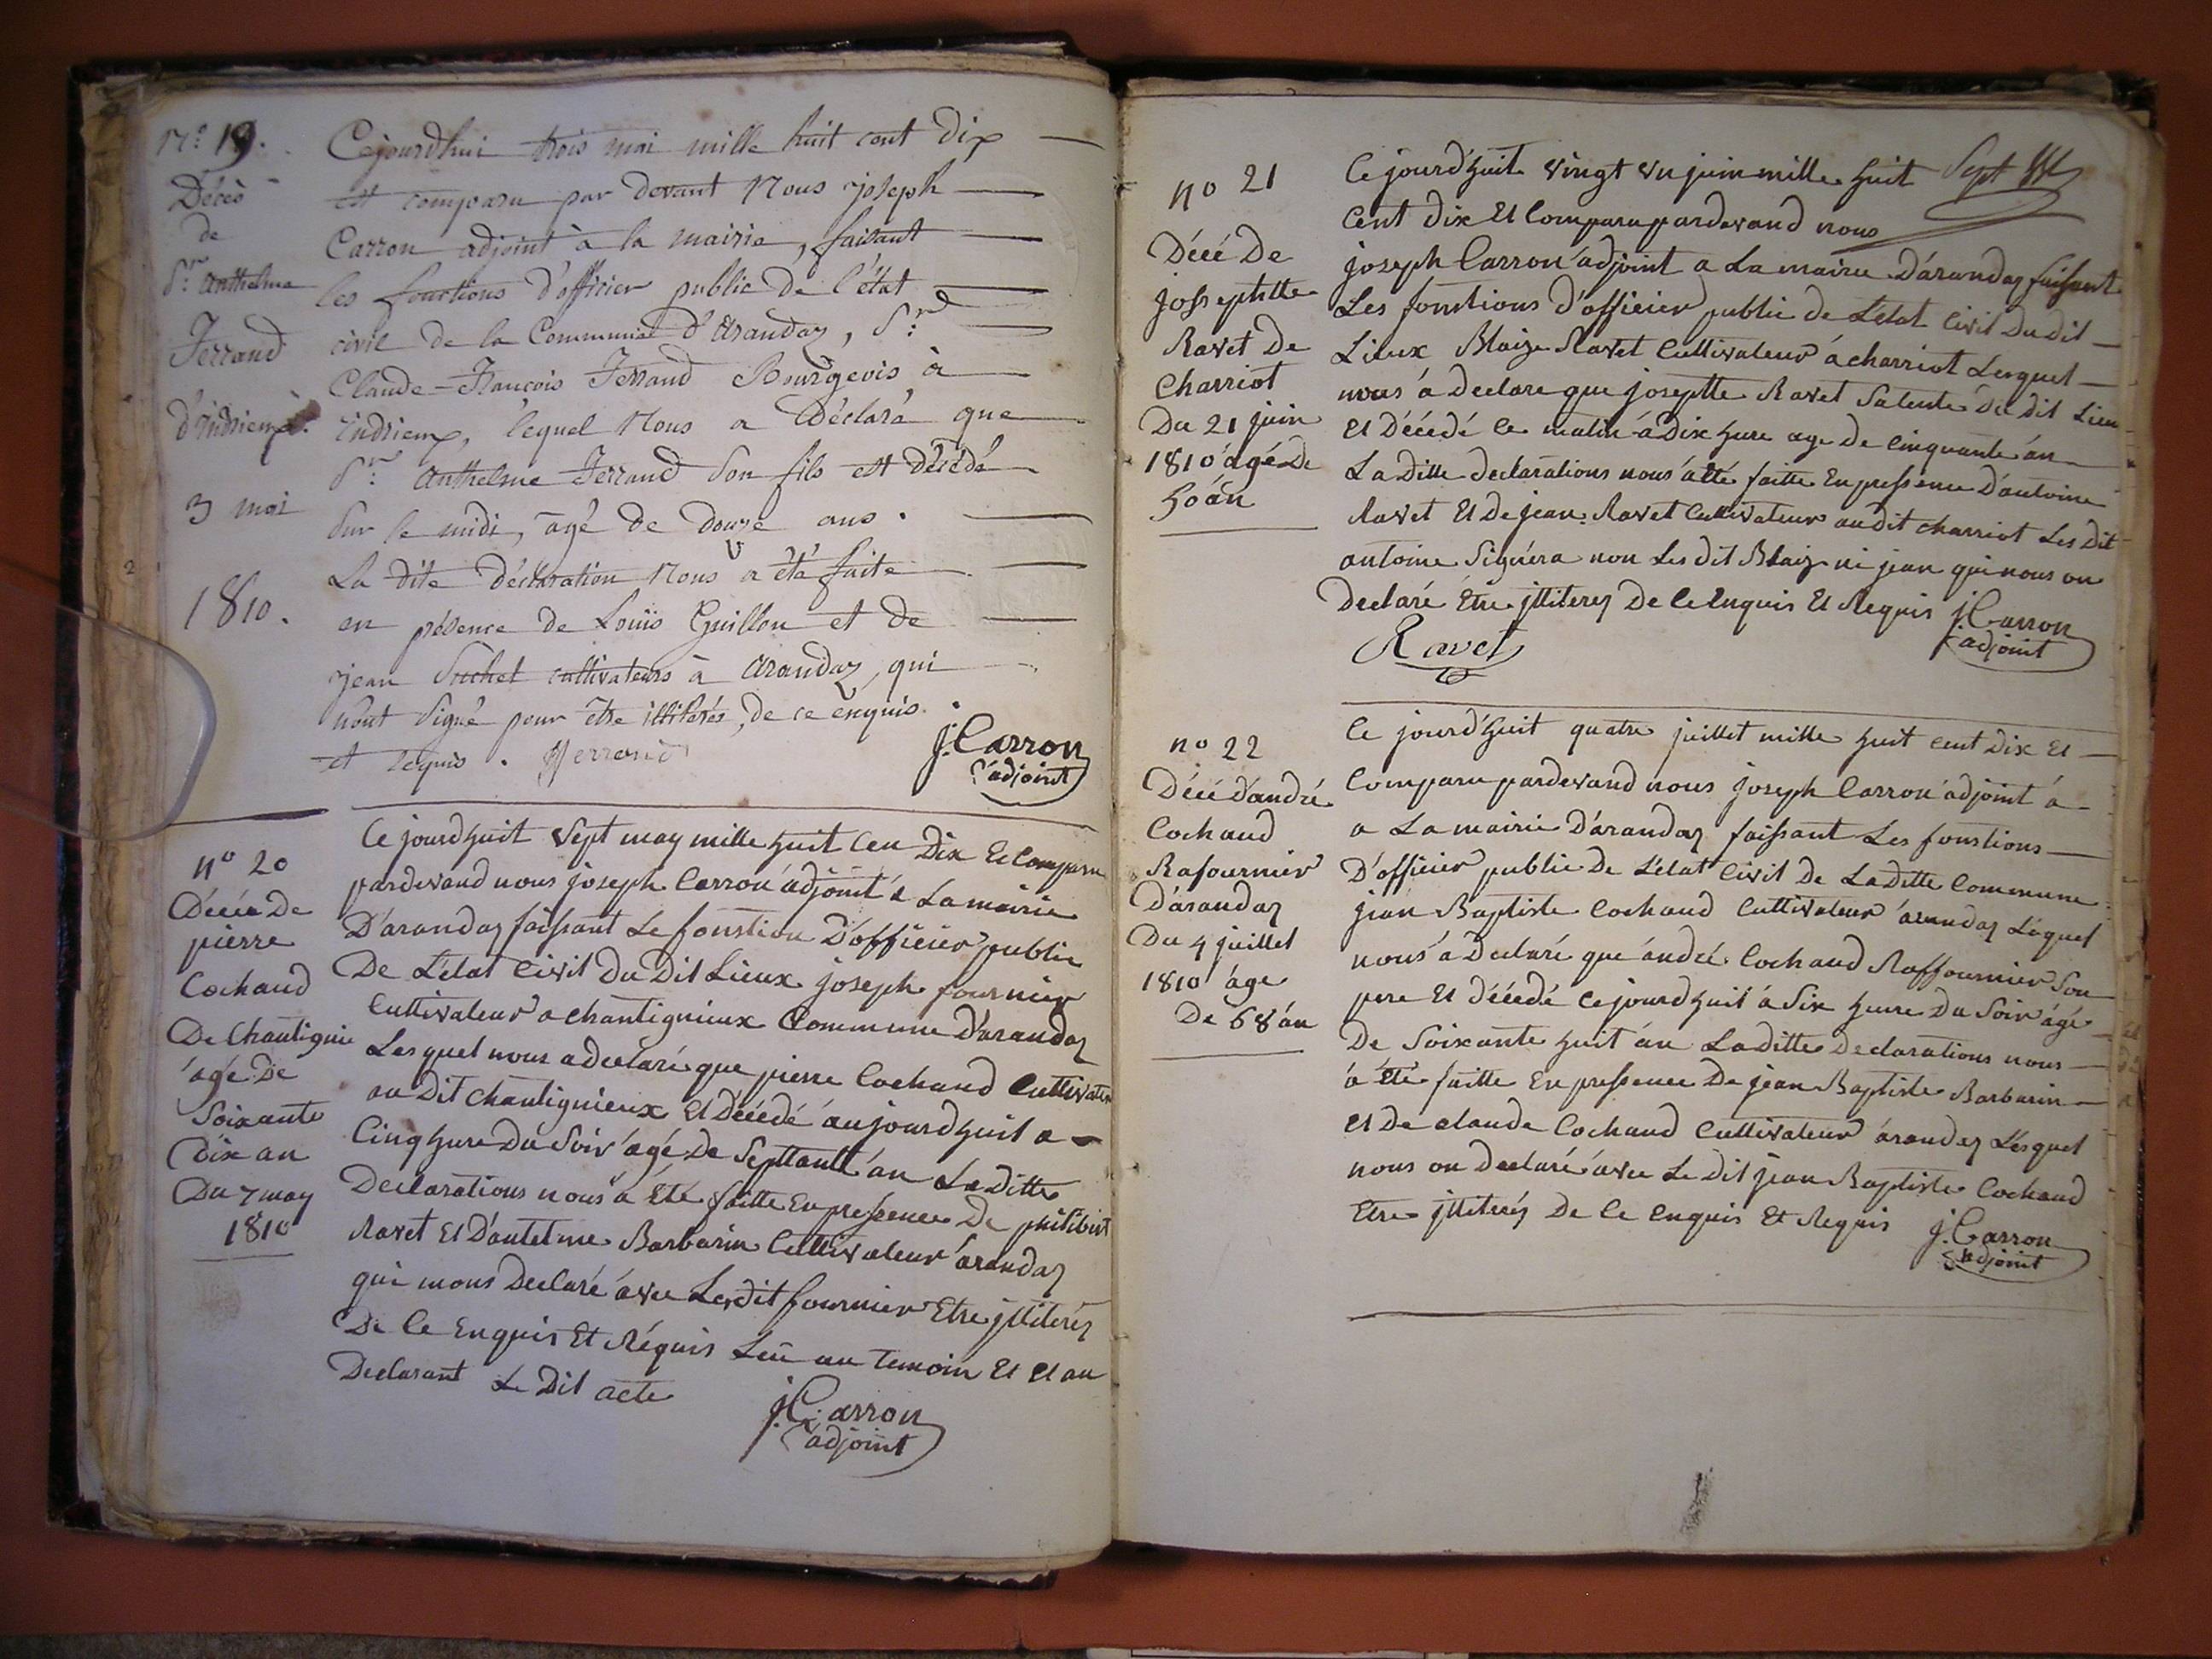 N.º 19.
Décès
de
S.r Anthelme
Ferrand
d'Indrieux.
3 mai
1810.
Cejourdhui trois mai mille huit cent dix
est comparu par devant Nous joseph
Carron adjoint à la mairie, faisant
les fonctions d'officier public de l'état
civil de la Commune d'Arandas, S.r
Claude-François Ferrand Bourgeois à
indrieux, lequel Nous a Déclaré que
S.r Anthelme Ferrand son fils est décédé
sur le midi, agé de douze ans.
La dite déclaration Nous a été faite
en présence de Louis Guillon et de
jean Suchet cultivateurs à Arandaz, qui
n'ont signé pour être illitérés, de ce enquis
et requis. Ferrand
j. Carron
adjoint
nº 20
Décée De
pierre
Cochaud
De Chantignie
âgé De
Soixante
Dix an
Du 7 may
1810
Ce jourdhuit Sept may mille huit Cen Dix Et Comparu
pardevand nous joseph Carron adjoint a La mairie
D'arandaz faissant Le fonstion D'officier public
De L'état Civil Du Dit Lieux joseph fournier
Cultivateur a chantignieux Commune D'arandaz
Lesquel nous a declaré que pierre Cochaud Cultivateur
au Dit chantignieux Et Décédé aujourdhuit a
Cinq hure Du Soir âgé De Septtantt an La Ditte
Declarations nous a Eté faitte En pressence De philibert
Ravet Et D'antelme Barbarin Cultivateur arandaz
qui mons Declaré avec Lesdit fournier Etre jlliterez
De Ce Enquis Et Réquis Leu au Temoin Et Et au
Declarant Le Dit acte
j. Carron
adjoint
no 21
Décé De
jossephtte
Ravet De
Charriot
Du 21 juin
1810 âgé De
50 an
Ce jourd'huit vingt un juin mille huit
Cent Dix Et Comparu pardevand nous
joseph Carron adjoint a La mairie D'arandaz faissant
Les fonstions d'officier public de L'état Civil Du dit
Lieux Blaize Ravet Cultivateur á charriot Lesquel
nous a Declare que joseptte Ravet Du dit Lieu
Et Décédé Ce matin á Dix hure age De Cinquante an
La Ditte declarations nous a été faitte En pressence D'antoine
Ravet Et De jean Ravet Cultivateur au dit charriot Les Dit
antoine Signéra non Les dit Blaiz ni jean qui nous on
Declaré Etre jlliterez De Ce Enquis Et Requis
j. Carron
adjoint
Ravet
no 22
Décé D'andré
Cochaud
Rafournier
D'arandaz
Du 4 juillet
1810 âge
De 68 an
Ce jourd'huit quatre juillet mille huit cent Dix Et
Comparu pardevand nous joseph Carron adjoint á
a La mairie D'arandaz faissant Les fonstions
D'officier public De L'état Civil De La Ditte Commune
jean Baptiste Cochaud Cultivateur arandaz Léquel
nous a Declaré que andré Cochaud Raffournier Son
pere Et Décédé Ce jourd huit á Six heure Du Soir âgé
De Soixante huit an La ditte Declarations nous
a Eté faitte En pressence De jean Baptiste Barbarin
Et De claude Cochaud Cultivateur arandaz Lesquel
nous on Declaré avec Le dit jean Baptiste Cochaud
Etre jlliterez De Ce Enquis Et Requis
j. Carron
adjoint